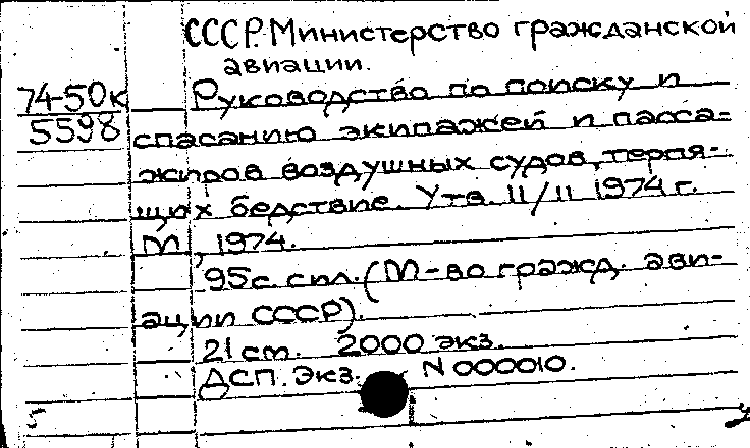 СССР. Министерство гражданской
авиации.
74-50к
5598
Руководство по поиску и
спасанию экипажей и пасса-
жиров воздушных судов, терпя-
щих бедствие. Утв. 11/II 1974 г.
М, 1974.
95 с. с ил. (М-во гражд. ави-
ации СССР).
21 см. 2000 экз.
ДСП. Экз. N 000010.